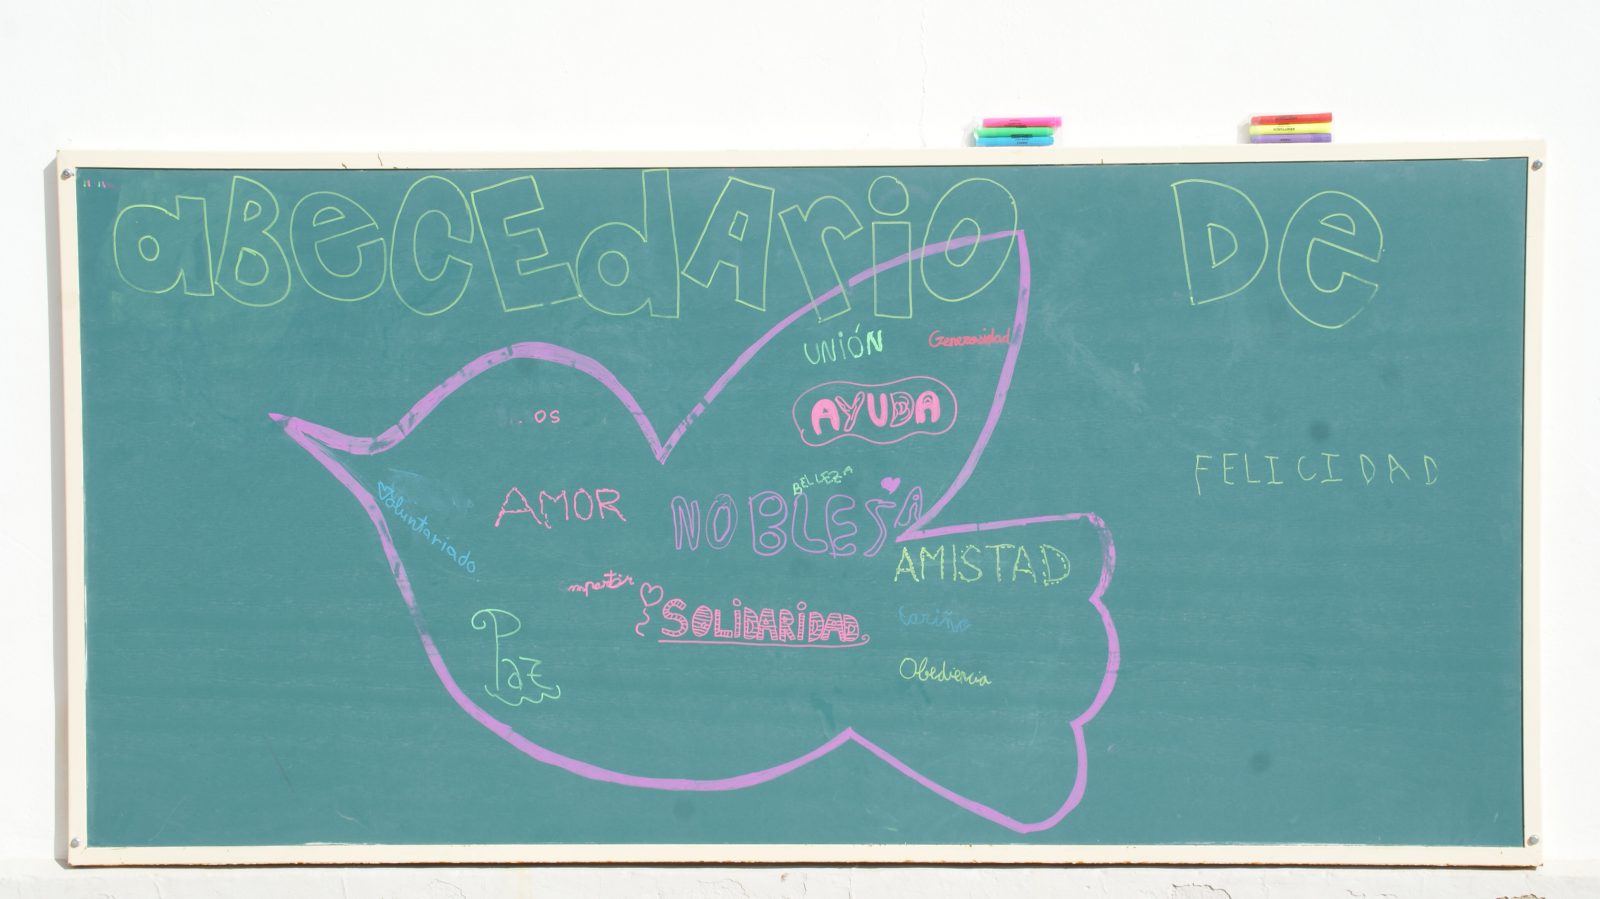 aBeCEdArio De
UNIÓN
Generosidad
AYUDA
os
FELICIDAD
BELLEZA
AMOR
NOBLESA
Voluntariado
AMISTAD
SOLiDARiDAD
Cariño
Paz
Obediencia